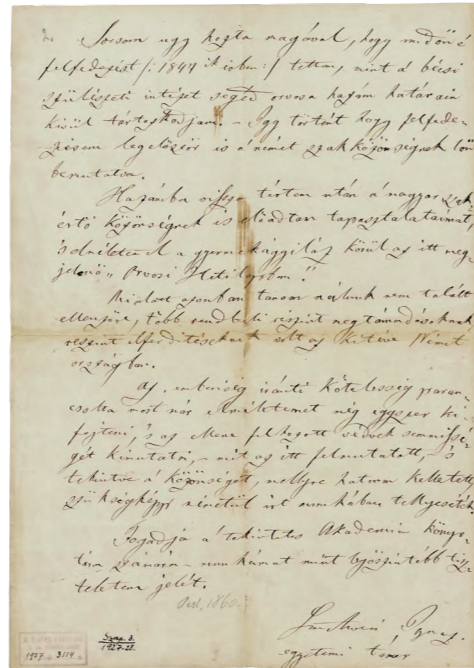 Sorsom ugy hozta magával, hogy midőn é
felfedezést /: 1847 ik évben :/ tettem, mint á bécsi
szülészeti intézet segéd orvosa hazám határain
kivül tartozkodjam. – így történt hogy felfede-
zésem legelőször is á német szakközönségnek lőn
bemutatva.
Hazámba vissza térten után á magyar szak
értő közönségnek is előadtam tapasztalataimat,
's elméletemet a gyermekágyiláz körül az itt meg
jelenő „Orvosi Hetilapban".
Mialatt azonban tanom nálunk nem talált
ellenzőre, több rendbeli részint megtámadásoknak
részint elferditéseknek volt az kitéve Német
országban.
Az emberiség iránti kötelesség paran-
csolta most már elméletemet még egyszer ki
fejteni, 's az ellene felhozott védvek semmisse-
gét kimutatni, – mit az itt felmutatott, 's
tekintve á közönséget, mellyre hatnom kelletett
szükségképp németül irt munkában tellyesiték.
Fogadja á tekintetes Akademia könyv-
tára számára – munkámat mint legőszintébb tisz-
teletem jelét.
Pest, 1860.
Semmelweis Ignáz
egyetemi tanár
1927 3114
1927.28.